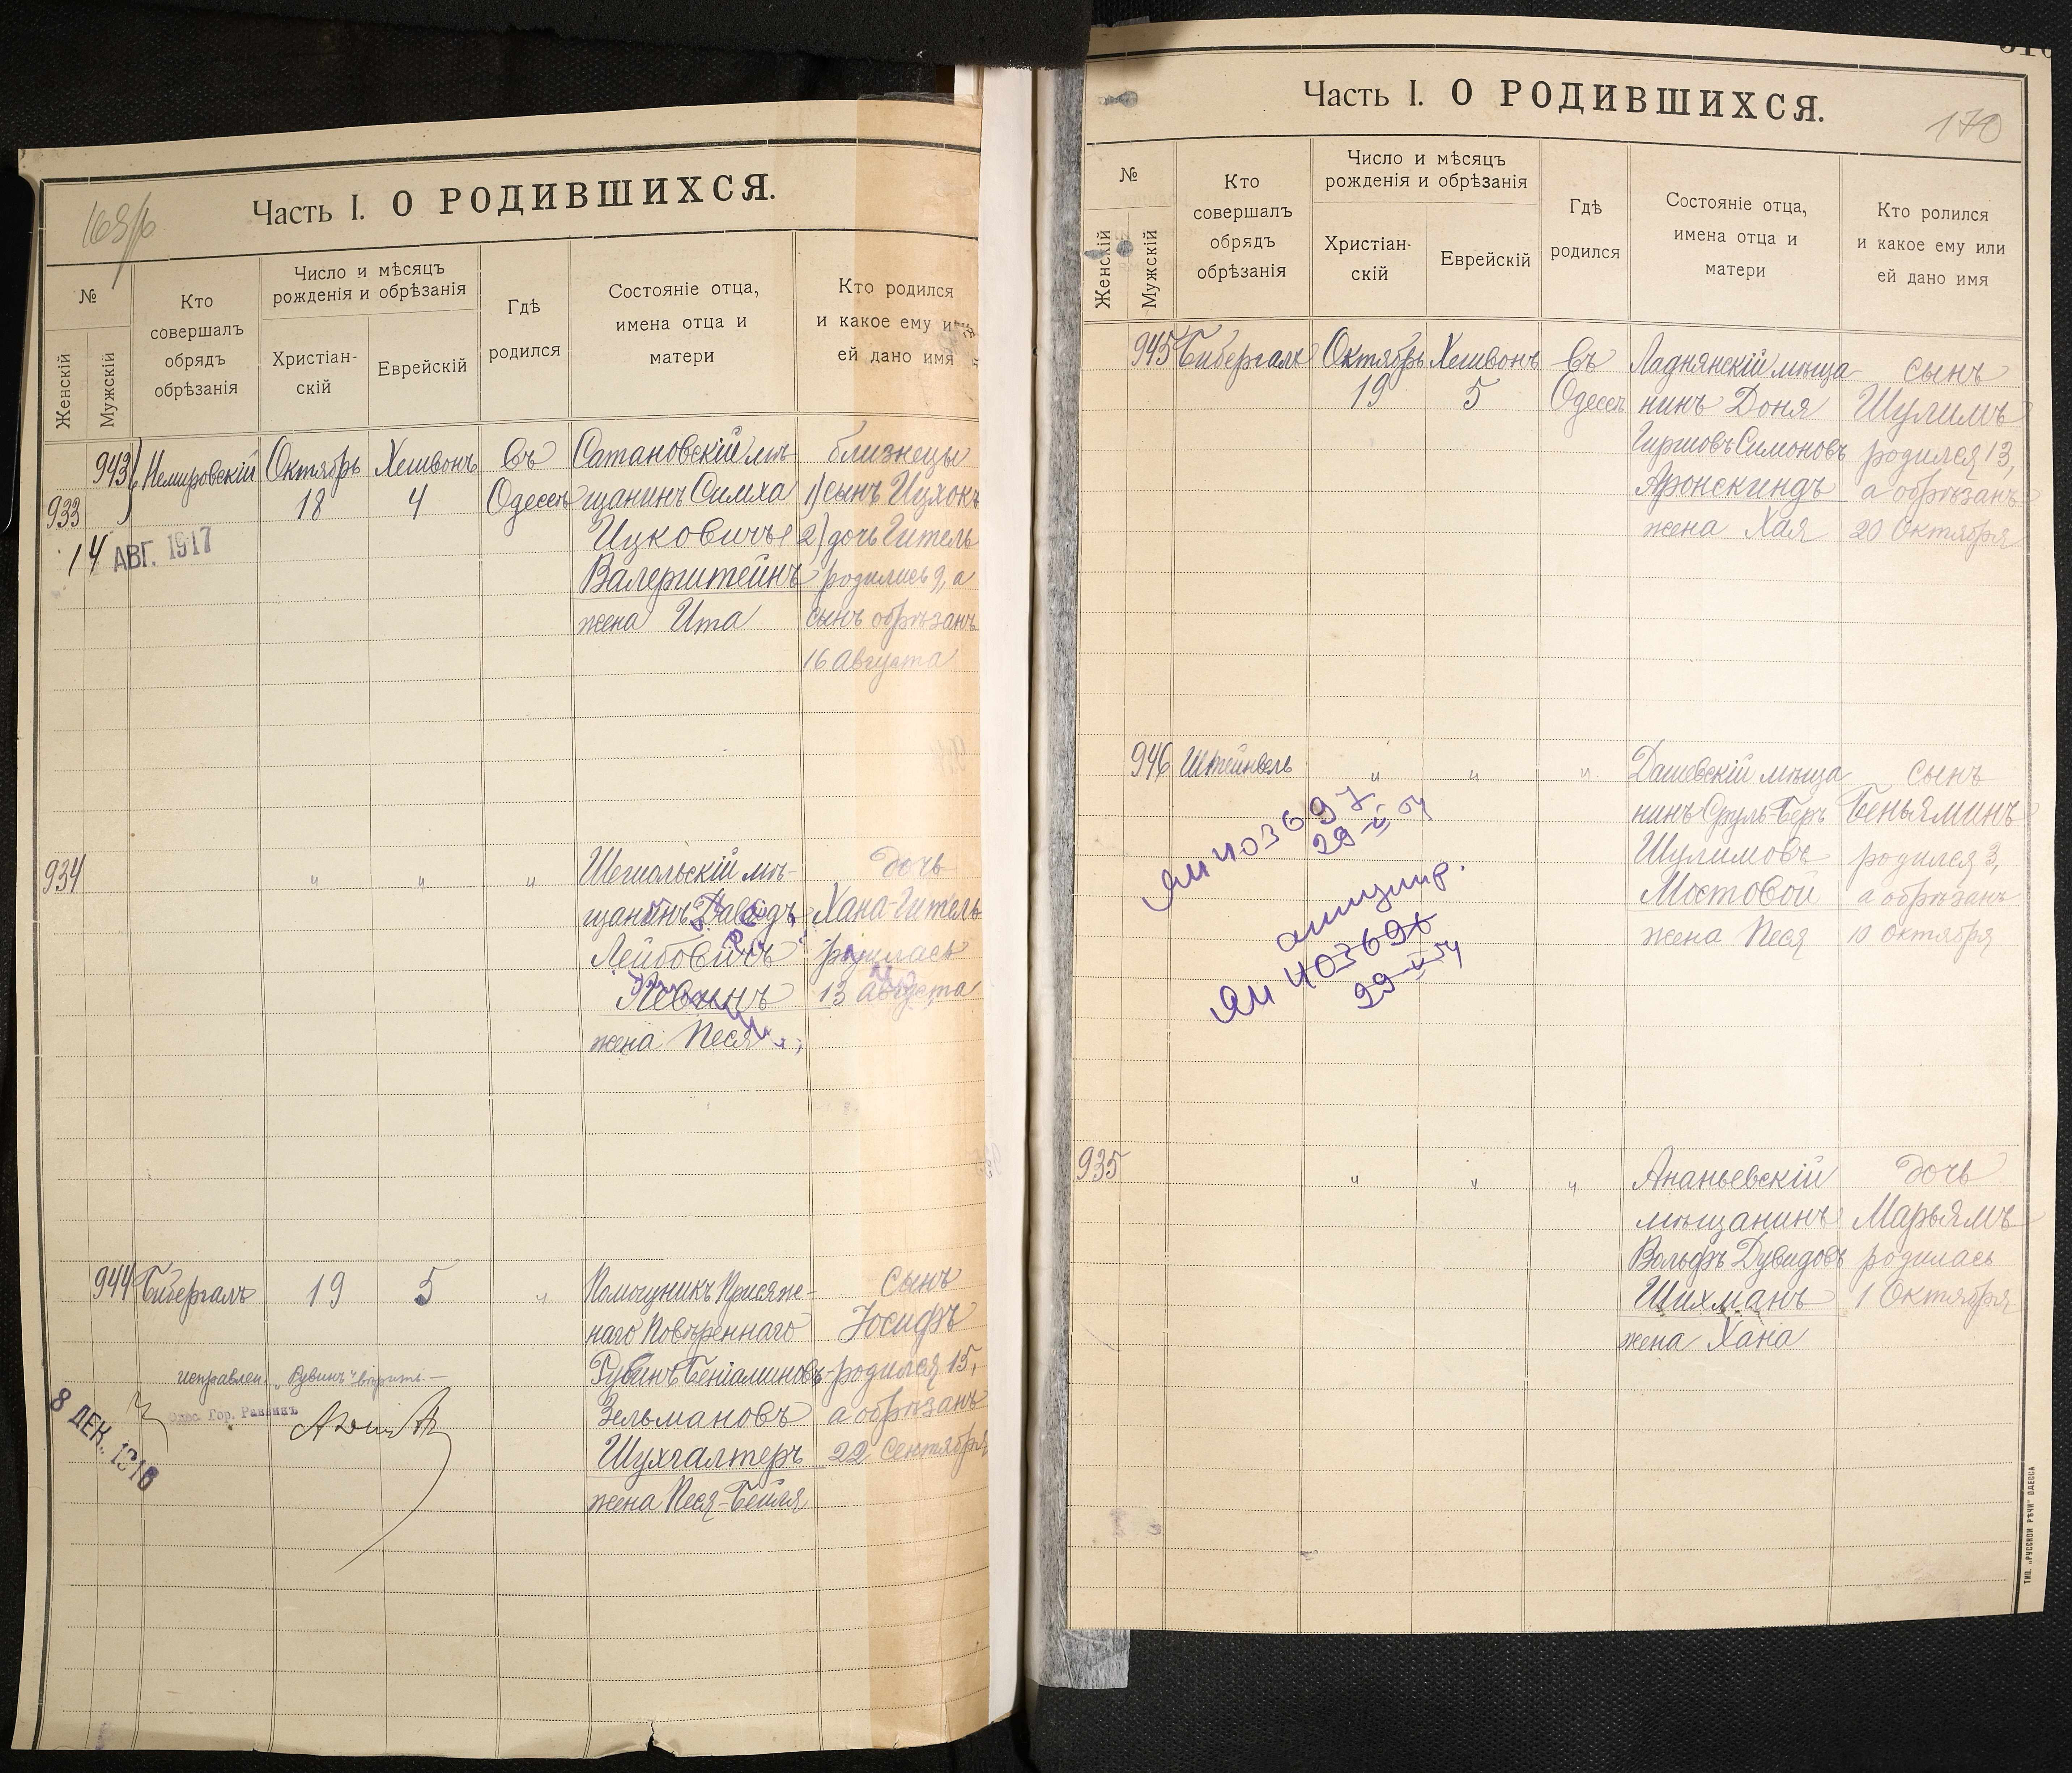 169/б
Часть I. О РОДИВШИХСЯ.
№
Женскій
Мужскій
Кто
совершалъ
обрядъ
обрѣзанія
Число и мѣсяцъ
рожденія и обрѣзанія
Христіан-
скій
Еврейскій
Гдѣ
родился
Состояніе отца,
имена отца и
матери
Кто родился
и какое ему или
ей дано имя
943
933
Немировскій
Октябрь
18
Хешвонъ
4
въ
Одессѣ
Сатановскій мѣ-
щанинъ Симха
Ицковичъ
Валерштейнъ
жена Ита
близнецы
1) сынъ Ицхокъ
2) дочь Гитель
родились 9, а
сынъ обрѣзанъ
16 Августа
14 АВГ. 1917
934
"
"
"
щанинъ Давидъ
Лейбовичъ
Левинъ
жена Песя
дочь
Хана-Гитель
родилась
13 Августа
944
Бибергалъ
19
5
"
Помощникъ Присяж-
наго Повѣреннаго
Рувинъ Беніаминовъ-
Зельмановъ
Шухгалтеръ
жена Песя-Бейля
сынъ
Іосифъ
родился 15,
а обрѣзанъ
22 Сентября
исправлен. „Рувинъ" вѣрить. —
Одес. Гор. Раввинъ
8 ДЕК. 1916
Часть I. О РОДИВШИХСЯ.
170
№
Женскій
Мужскій
Кто
совершалъ
обрядъ
обрѣзанія
Число и мѣсяцъ
рожденія и обрѣзанія
Христіан-
скій
Еврейскій
Гдѣ
родился
Состояніе отца,
имена отца и
матери
Кто ролился
и какое ему или
ей дано имя
945
Бибергалъ
Октябрь
19
Хешвонъ
5
въ
Одессѣ
Ладнянскій мѣща-
нинъ Доня
Гиршовъ Симоновъ
Аронскиндъ
жена Хая
сынъ
Шулимъ
родился 13,
а обрѣзанъ
20 Октября
946
Штейнвель
"
"
"
Дашевскій мѣща-
нинъ Сруль-Беръ
Шулимовъ
Мостовой
жена Песя
сынъ
Беньяминъ
родился 3,
а обрѣзанъ
10 Октября
ЯМ 403697
29-V-54
аннулир.
ЯМ 403696
29-V-54
935
"
"
"
Ананьевскій
мѣщанинъ
Вольфъ Дувидовъ
Шихманъ
жена Хана
дочь
Марьямъ
родилась
1 Октября
ТИП. „РУССКОЙ РѢЧИ" ОДЕССА